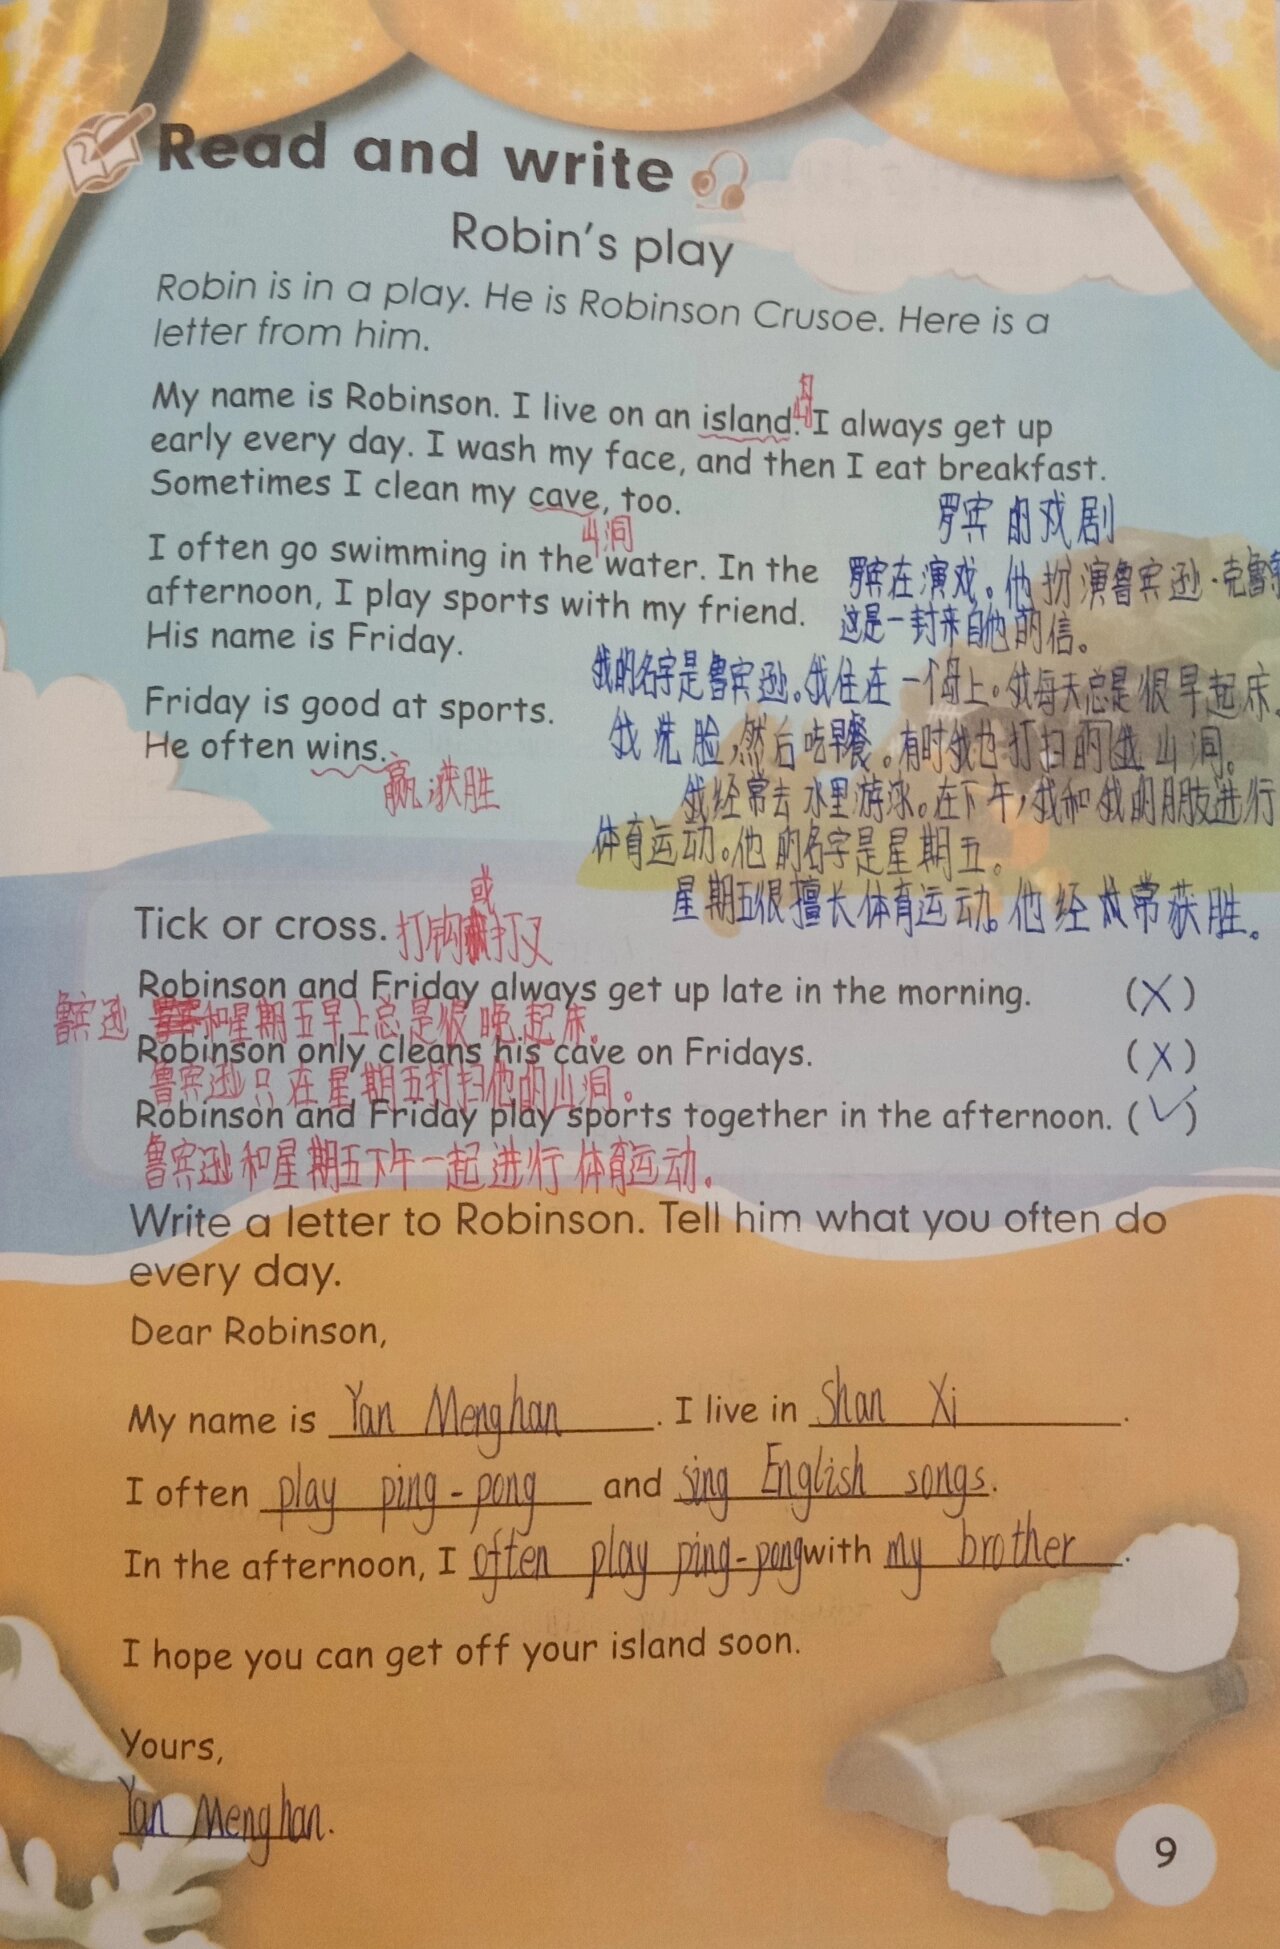 Read and write
Robin's play
Robin is in a play. He is Robinson Crusoe. Here is a
letter from him.
My name is Robinson. I live on an island. I always get up
岛
early every day. I wash my face, and then I eat breakfast.
Sometimes I clean my cave, too.
山洞
罗宾的戏剧
I often go swimming in the water. In the
罗宾在演戏。他扮演鲁宾逊·克鲁
afternoon, I play sports with my friend.
这是一封来自他的信。
His name is Friday.
我的名字是鲁宾逊。我住在一个岛上。我每天总是很早起床。
Friday is good at sports.
我洗脸,然后吃早餐。有时我也打扫的我山洞。
He often wins.
赢,获胜
我经常去水里游泳。在下午,我和我的朋友进行
体育运动。他的名字是星期五。
星期五很擅长体育运动。他经常获胜。
Tick or cross. 打钩或打叉
Robinson and Friday always get up late in the morning. (×)
鲁宾逊和星期五早上总是很晚起床。
Robinson only cleans his cave on Fridays. (×)
鲁宾逊只在星期五打扫他的山洞。
Robinson and Friday play sports together in the afternoon. (✓)
鲁宾逊和星期五下午一起进行体育运动。
Write a letter to Robinson. Tell him what you often do
every day.
Dear Robinson,
My name is Yan Menghan. I live in Shan Xi.
I often play ping-pong and sing English songs.
In the afternoon, I often play ping-pong with my brother.
I hope you can get off your island soon.
Yours,
Yan Menghan.
9